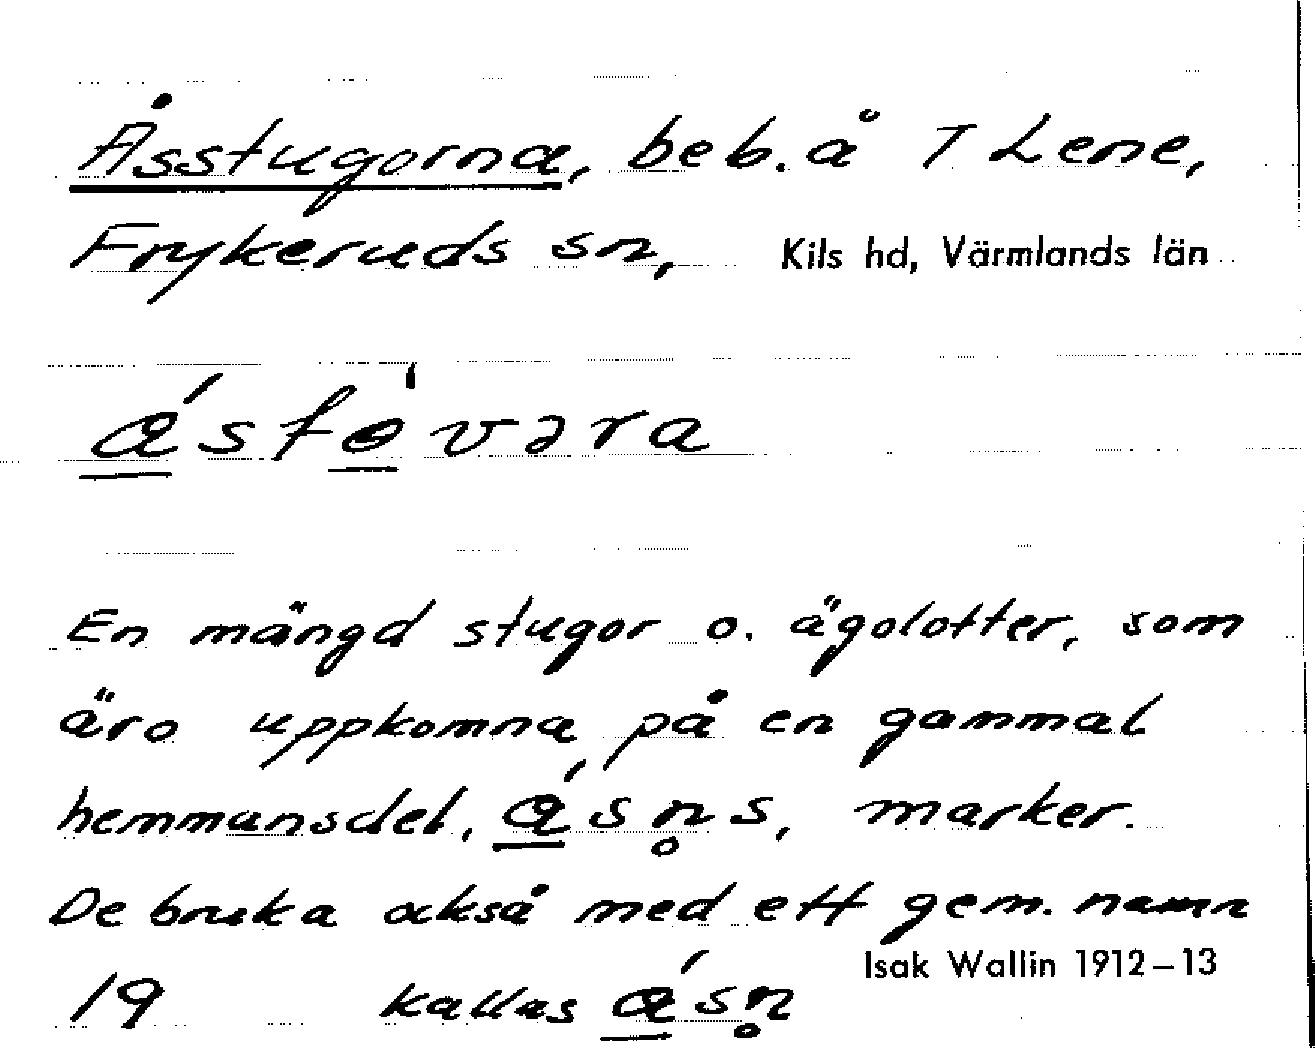 Åsstugorna, beb. å T Lene,
Frykeruds sn, Kils hd, Värmlands län
ásfóvəra
En mängd stugor o. ägolotter, som
äro uppkomna på en gammal
hemmansdel, ásn̥s, marker.
De bruka också med ett gem. namn
Isak Wallin 1912–13
19 kallas ásn̥